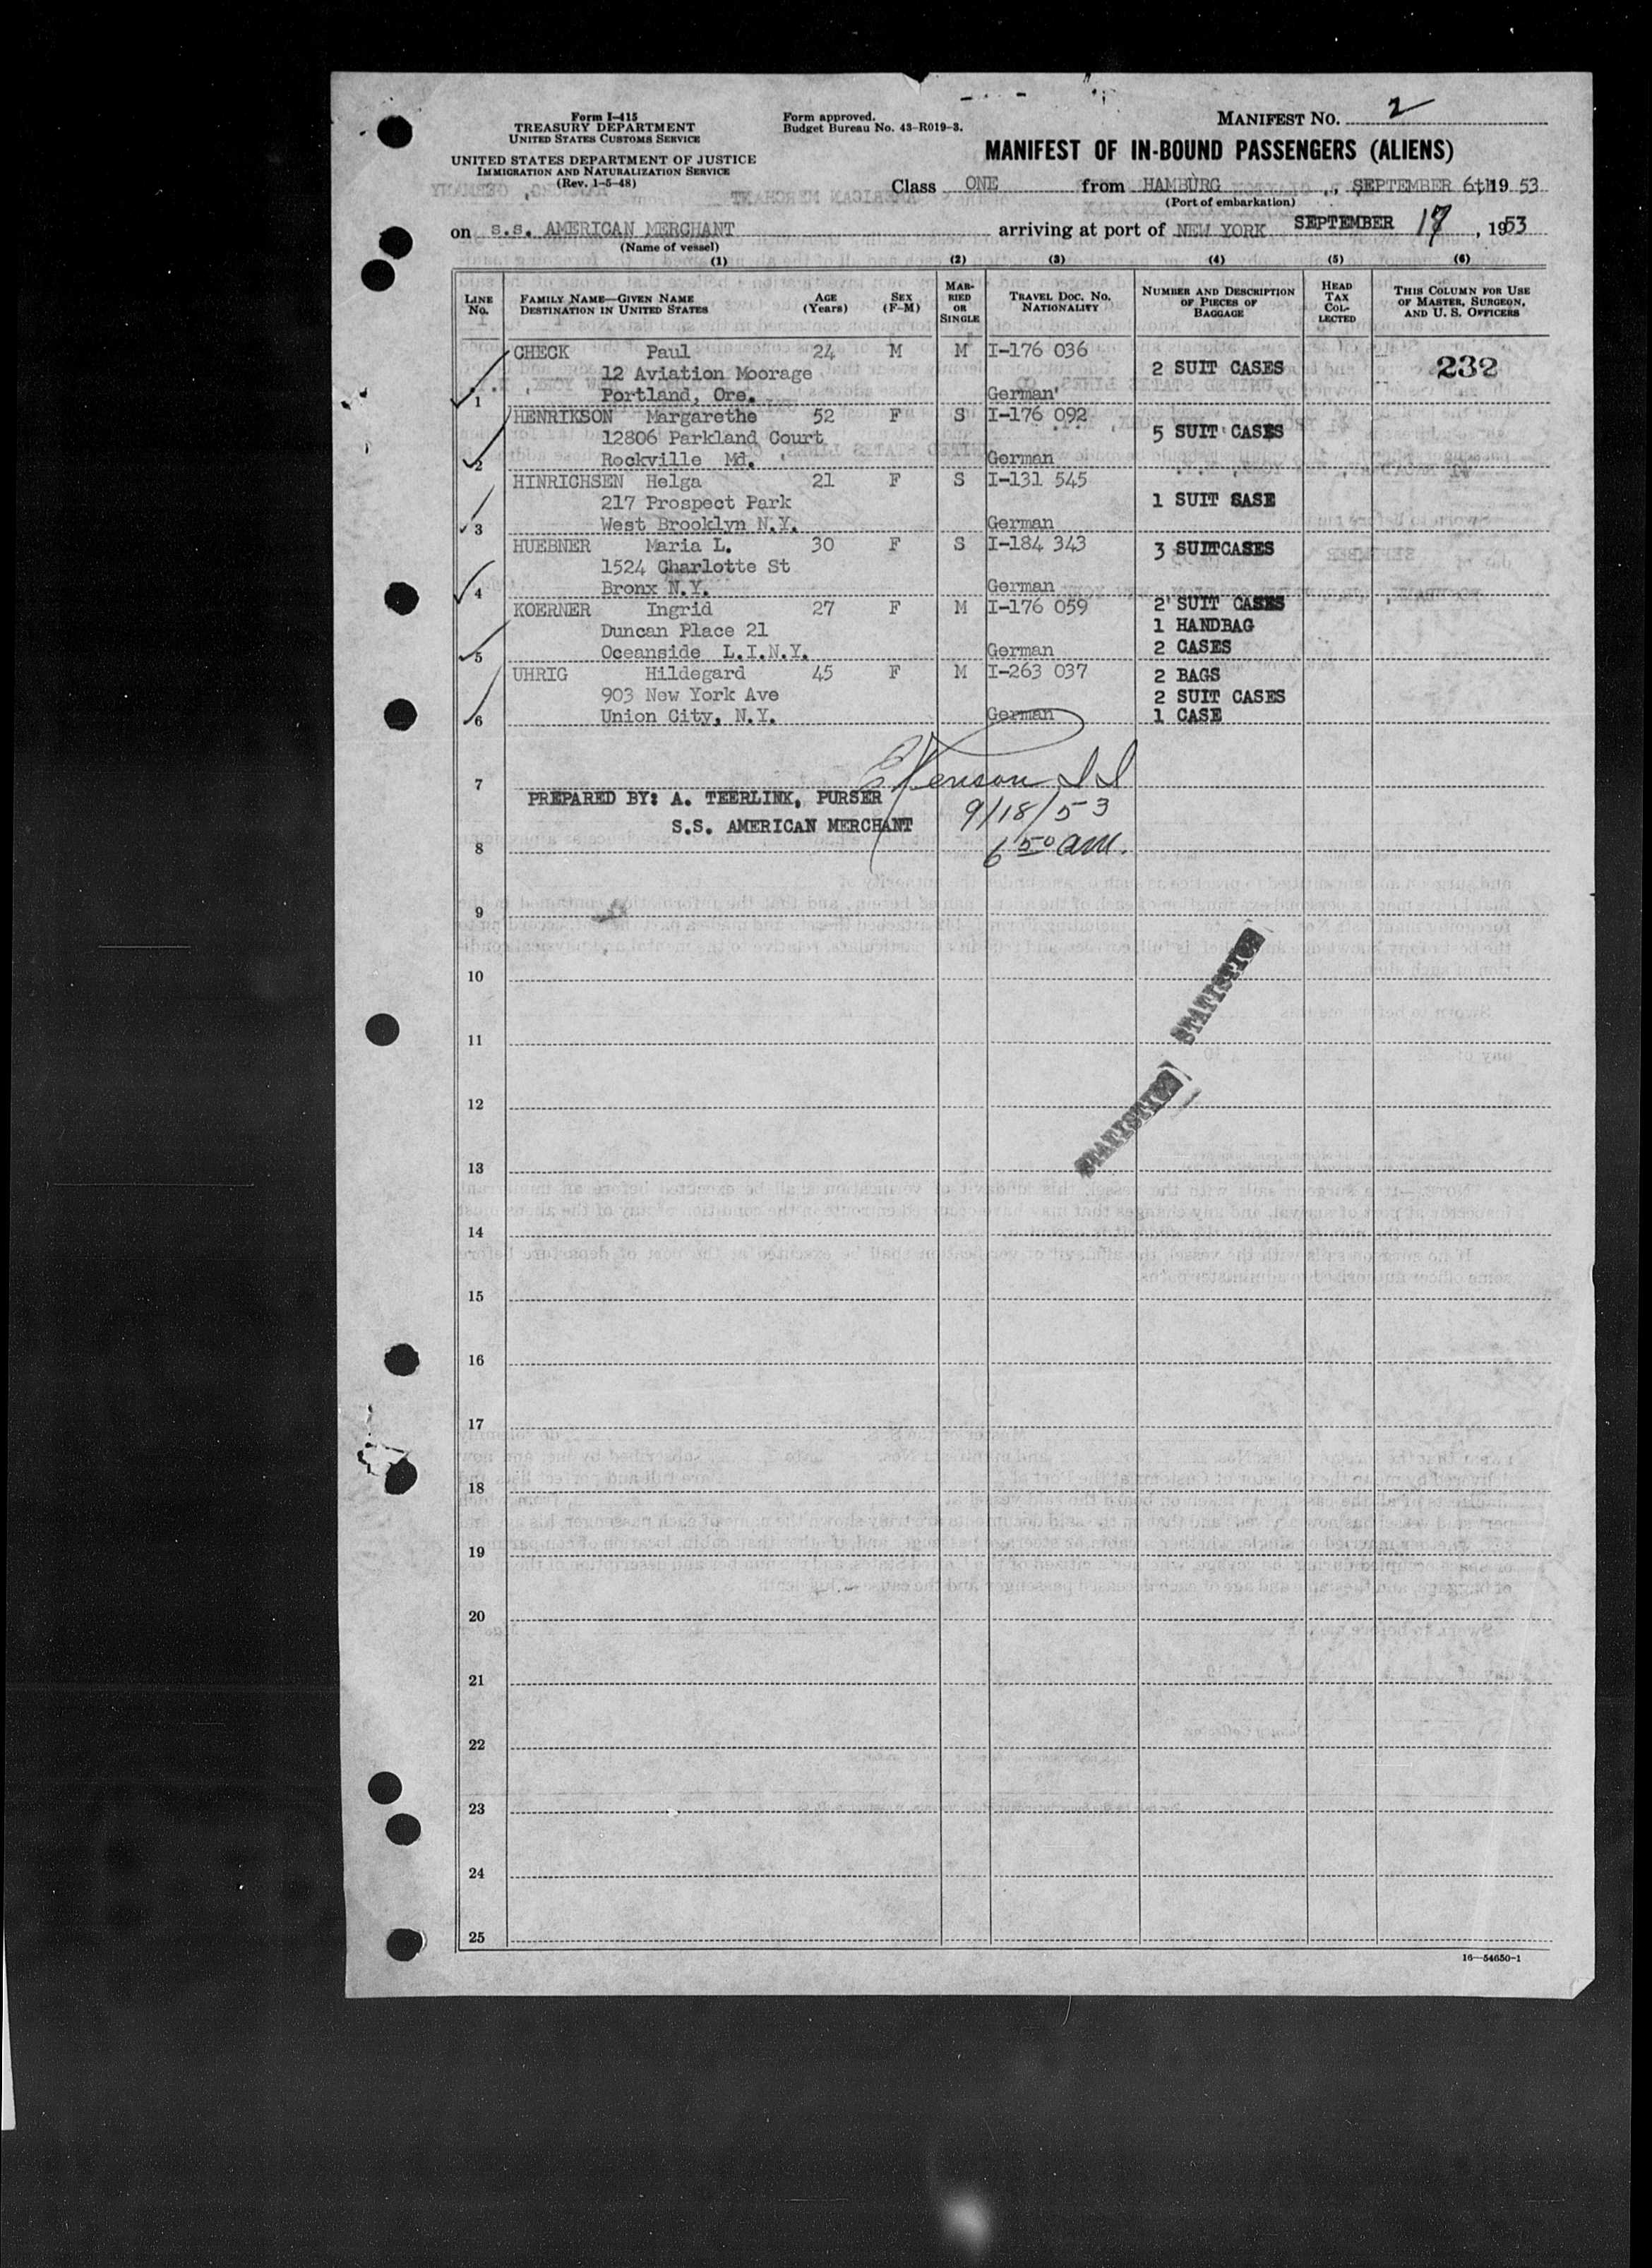 Form I-415
TREASURY DEPARTMENT
UNITED STATES CUSTOMS SERVICE
UNITED STATES DEPARTMENT OF JUSTICE
IMMIGRATION AND NATURALIZATION SERVICE
(Rev. 1-5-48)
Form approved.
Budget Bureau No. 43-R019-3.
MANIFEST NO. 2
MANIFEST OF IN-BOUND PASSENGERS (ALIENS)
Class ONE from HAMBURG, SEPTEMBER 6th 19 53
(Port of embarkation)
on s.s. AMERICAN MERCHANT arriving at port of NEW YORK SEPTEMBER 17, 1953
(Name of vessel)
(1) (2) (3) (4) (5) (6)
LINE No. FAMILY NAME—GIVEN NAME DESTINATION IN UNITED STATES AGE (Years) SEX (F-M) MARRIED OR SINGLE TRAVEL DOC. NO. NATIONALITY NUMBER AND DESCRIPTION OF PIECES OF BAGGAGE HEAD TAX COLLECTED THIS COLUMN FOR USE OF MASTER, SURGEON, AND U. S. OFFICERS
CHECK Paul 24 M M I-176 036
12 Aviation Moorage 2 SUIT CASES 232
1 Portland, Ore. German
HENRIKSON Margarethe 52 F S I-176 092
12806 Parkland Court 5 SUIT CASES
2 Rockville Md. German
HINRICHSEN Helga 21 F S I-131 545
217 Prospect Park 1 SUIT SASE
3 West Brooklyn N.Y. German
HUEBNER Maria L. 30 F S I-184 343 3 SUITCASES
1524 Charlotte St
4 Bronx N.Y. German
KOERNER Ingrid 27 F M I-176 059 2 SUIT CASES
Duncan Place 21 1 HANDBAG
5 Oceanside L.I.N.Y. German 2 CASES
UHRIG Hildegard 45 F M I-263 037 2 BAGS
903 New York Ave 2 SUIT CASES
6 Union City, N.Y. German 1 CASE
7
PREPARED BY: A. TEERLINK, PURSER 9/18/53
S.S. AMERICAN MERCHANT
8 6 50 am.
9
STATISTICS
10
11
STATISTICS
12
13
14
15
16
17
18
19
20
21
22
23
24
25
16—54650-1